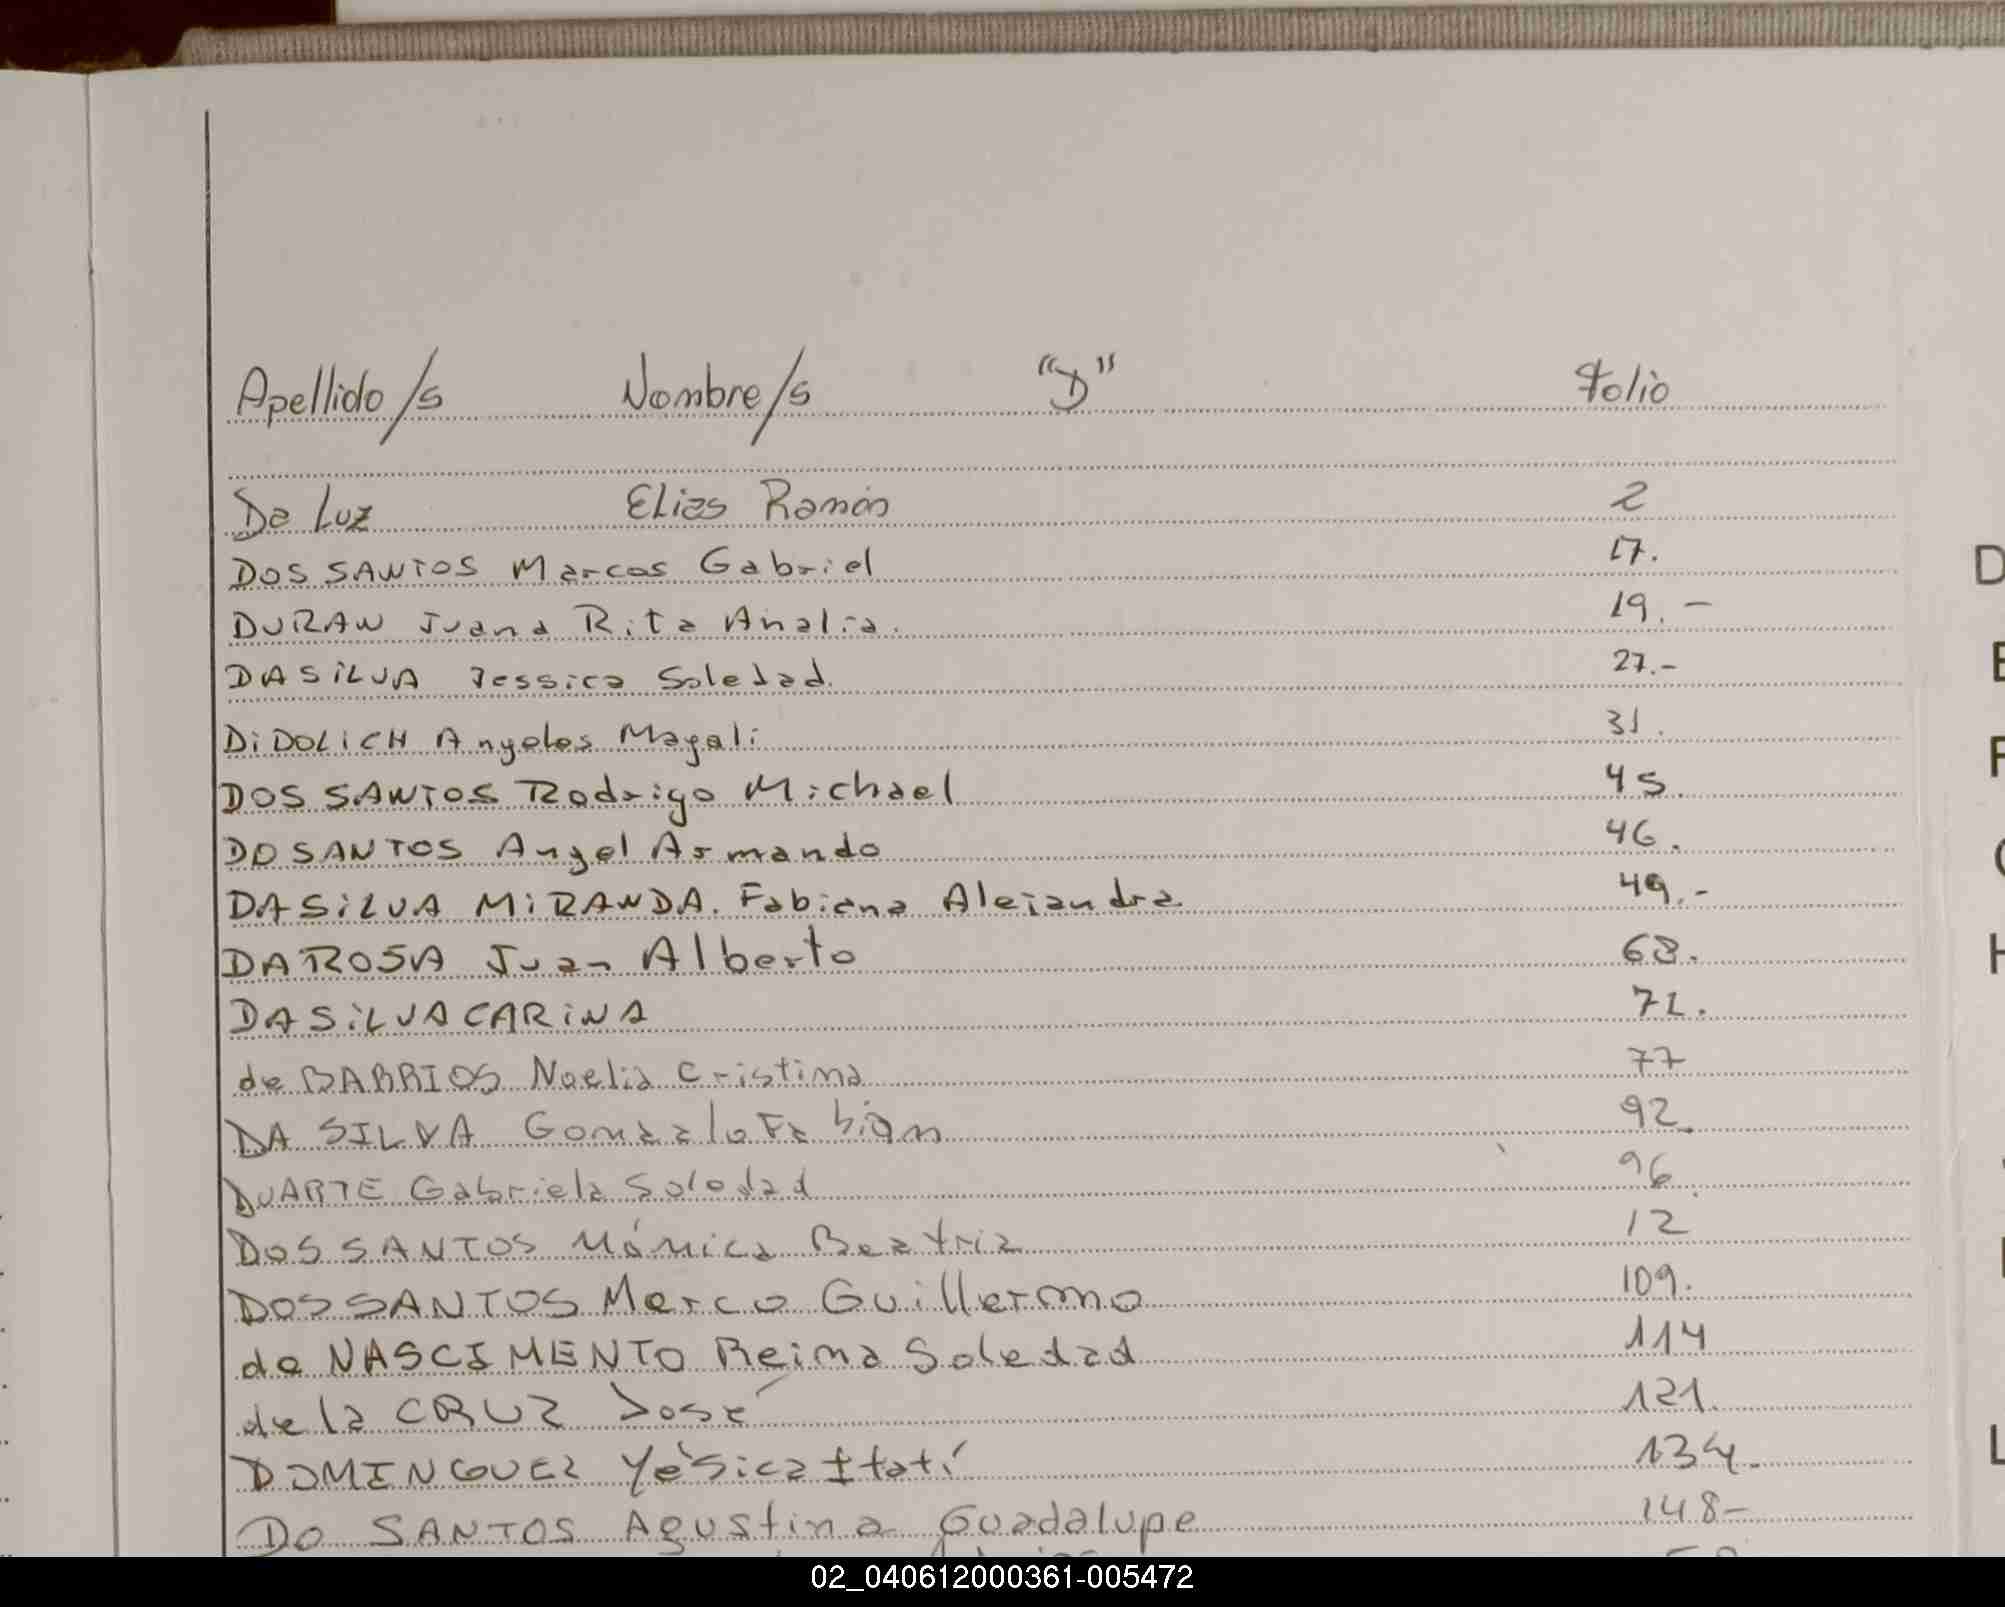 Apellido/s Nombre/s "D" Folio
Da Luz Elias Ramón 2
DOS SANTOS Marcos Gabriel 17.
DURAN Juana Rita Analia. 19.-
DASILVA Jessica Soledad. 27.-
DiDOLiCH Angeles Magali 31.
DOS SANTOS Rodrigo Michael 45.
DO SANTOS Angel Armando 46.
DASiLVA MiRANDA. Fabiana Alejandra 49.-
DAROSA Juan Alberto 68.
DASiLVA CARiNA 72.
de BARRIOS Noelia Cristina 77
DA SILVA Gonzalo Fabian 92.
DUARTE Gabriela Soledad 96.
DOS SANTOS Mónica Beatriz 12
DOS SANTOS Marco Guillermo 109.
do NASCIMENTO Reina Soledad 114
de la CRUZ José 121.
DOMINGUEZ Yésica Itatí 134.
DO SANTOS Agustina Guadalupe 148-
D
E
F
H
L
02_040612000361-005472